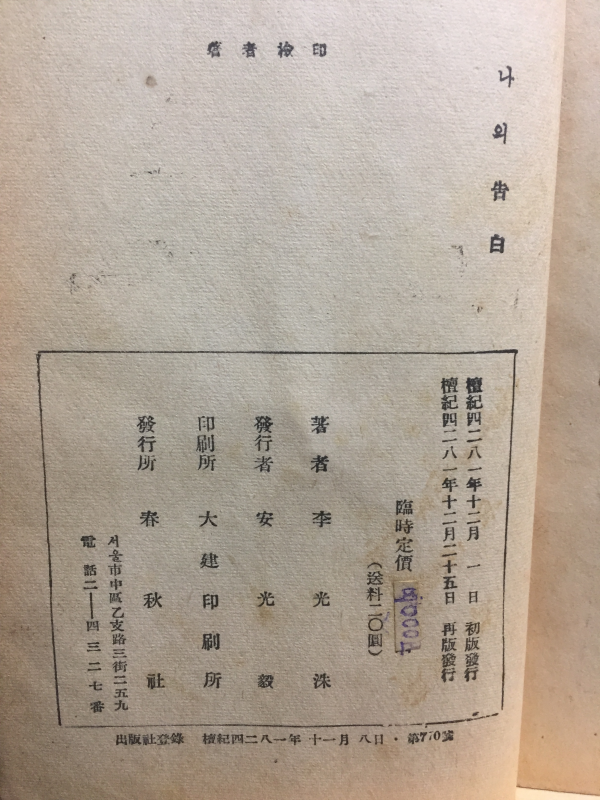 著者檢印
나의告白
檀紀四二八一年十二月 一日 初版發行
檀紀四二八一年十二月二十五日 再版發行
臨時定價
(送料二〇圓)
著者 李光洙
發行者 安光毅
印刷所 大建印刷所
發行所 春秋社
서울市中區乙支路三街二五九
電話二—四三二七番
出版社登錄 檀紀四二八一年 十一月 八日・第770號